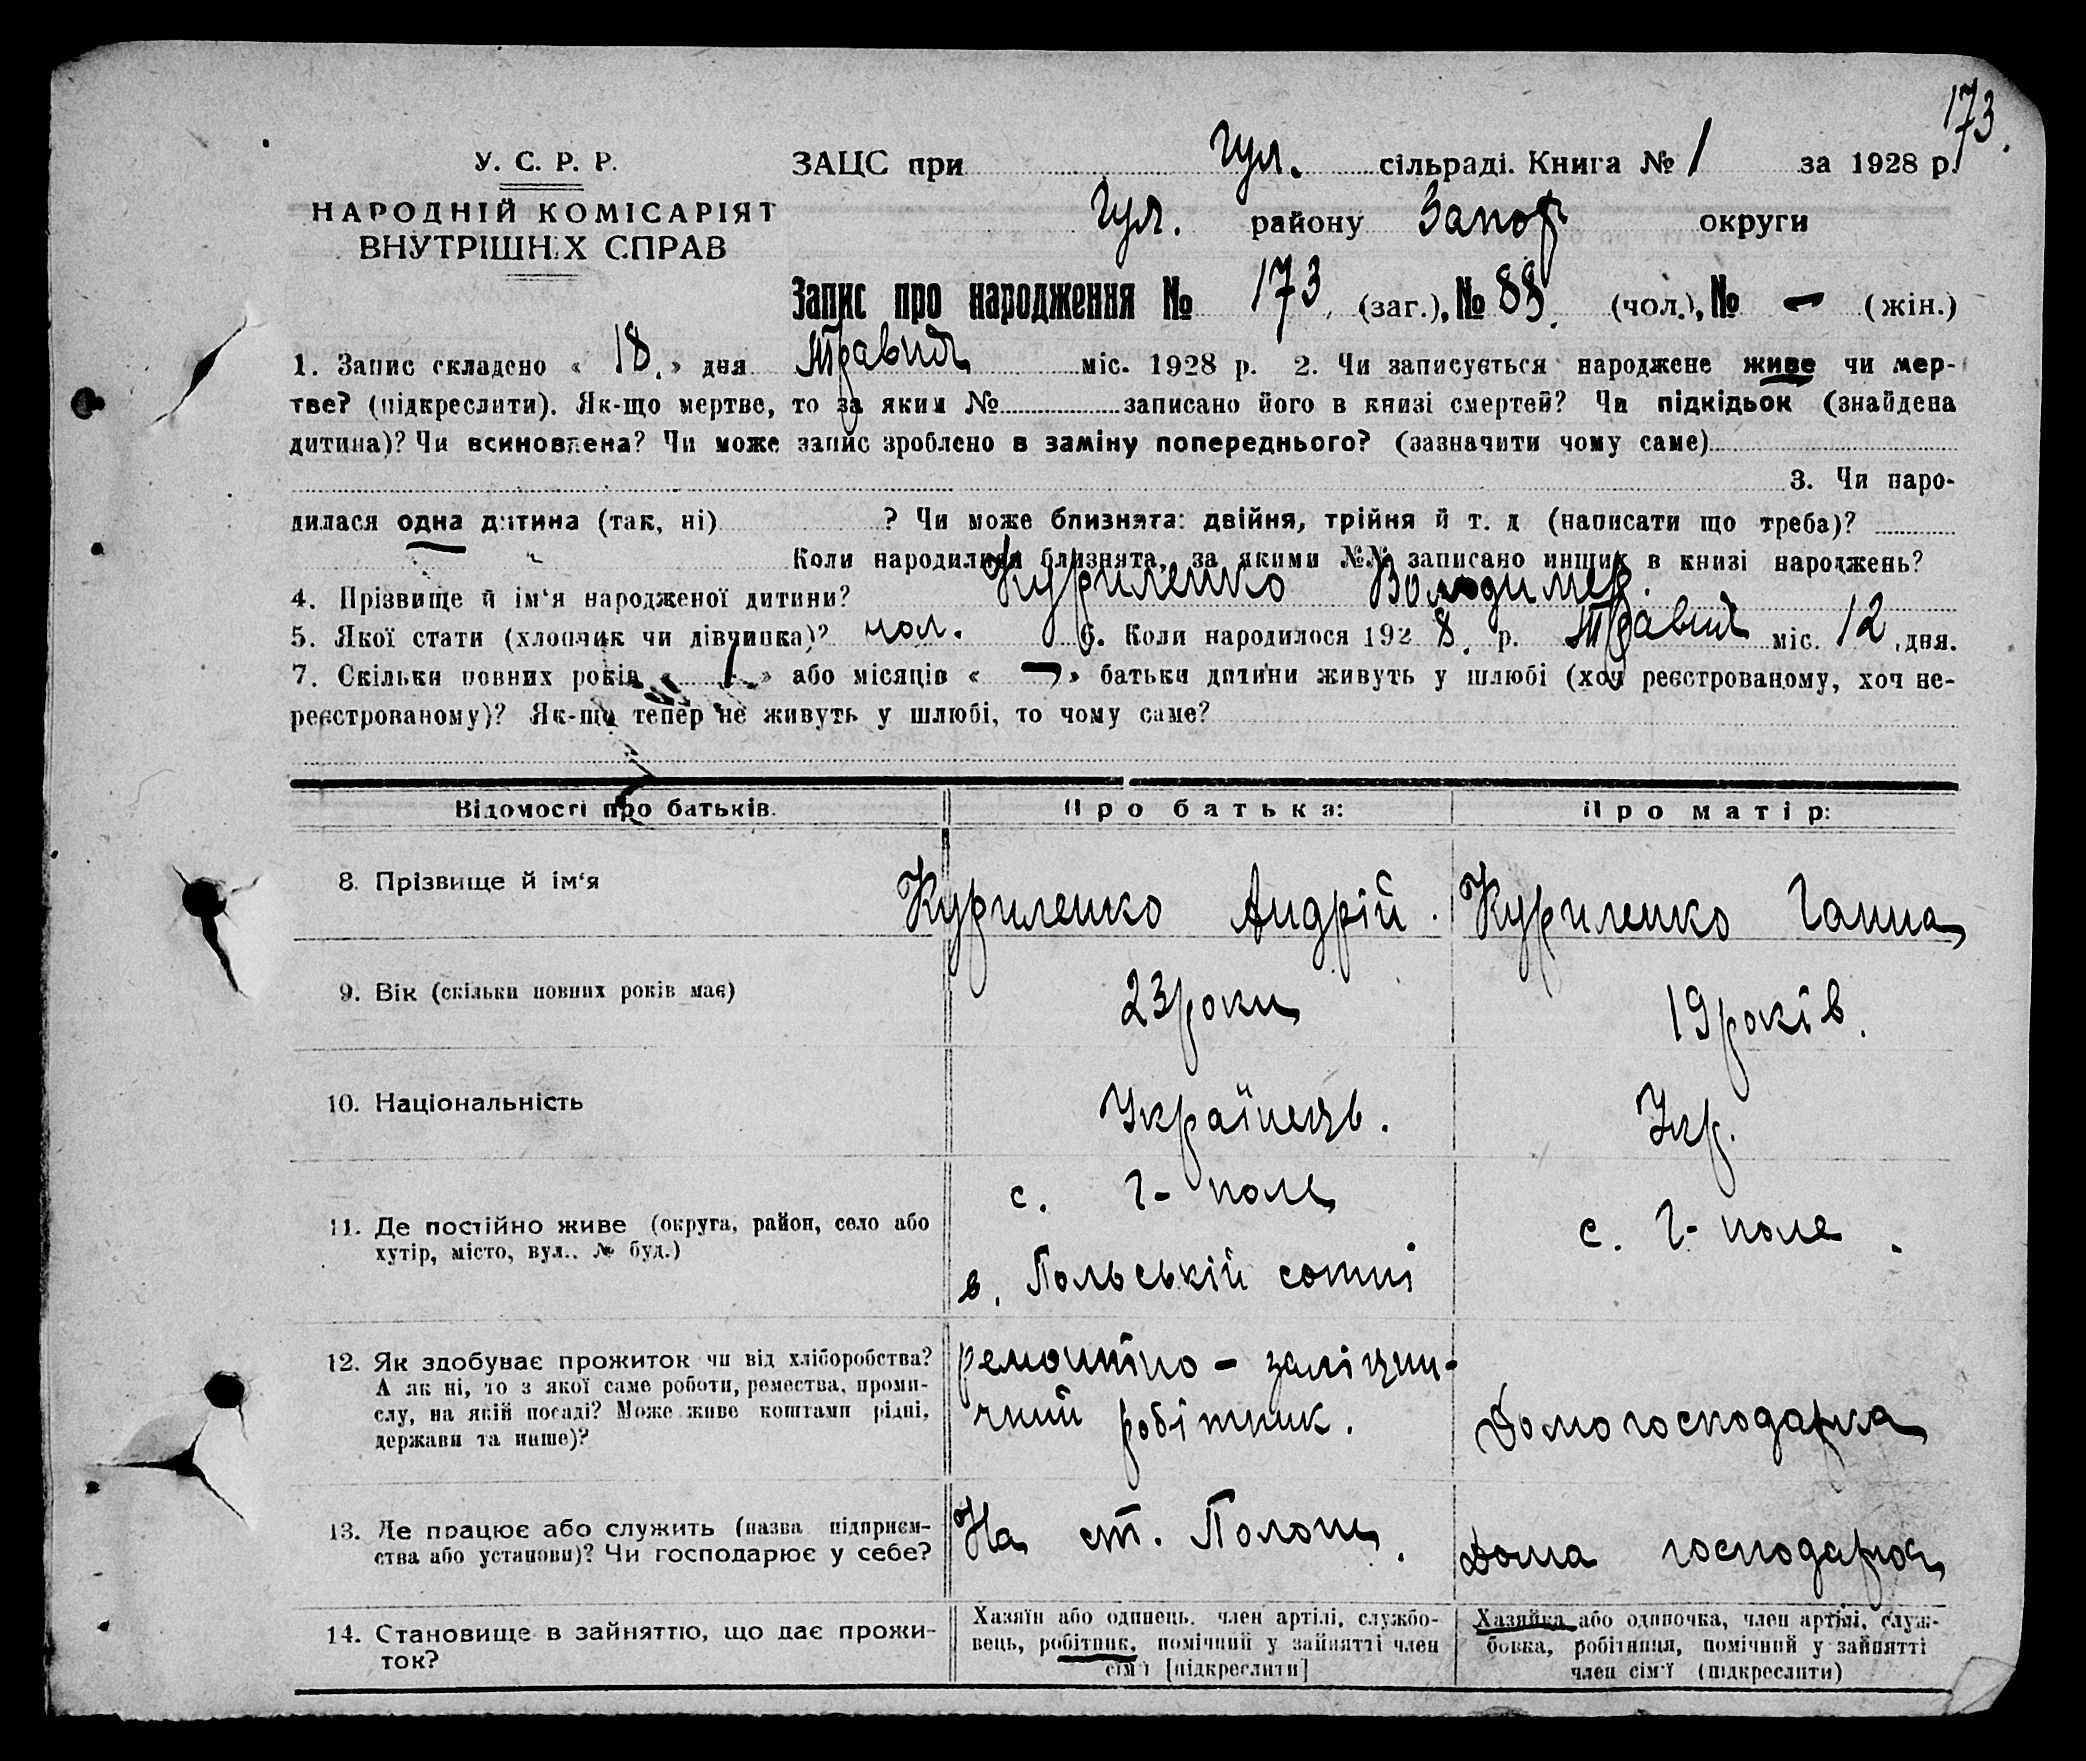 173.
У. С. Р. Р.
НАРОДНІЙ КОМІСАРІЯТ
ВНУТРІШНІХ СПРАВ
ЗАЦС при Гул. сільраді. Книга № 1 за 1928 р.
Гул. району Запор округи
Запис про народження № 173 (заг.), № 88. (чол.), № – (жін.)
1. Запис складено « 18. » дня Травня міс. 1928 р. 2. Чи записується народжене живе чи мер-
тве? (підкреслити). Як-що мертве, то за яким № записано його в книзі смертей? Чи підкідьок (знайдена
дитина)? Чи всиновлена? Чи може запис зроблено в заміну попереднього? (зазначити чому саме)
3. Чи наро-
дилася одна дитина (так, ні) ? Чи може близнята: двійня, трійня й т. д (написати що треба)?
Коли народилися близнята, за якими №№ записано инших в книзі народжень?
4. Прізвище й ім‘я народженої дитини? Куриленко Володимер.
5. Якої стати (хлопчик чи дівчинка)? чол. 6. Коли народилося 192 8. р. Травня міс. 12 дня.
7. Скільки повних років « 1 » або місяців « – » батьки дитини живуть у шлюбі (хоч реєстрованому, хоч не-
реєстрованому)? Як-що тепер не живуть у шлюбі, то чому саме?
Відомості про батьків. Про батька: Про матір:
8. Прізвище й ім‘я Куриленко Андрій. Куриленко Ганна
9. Вік (скільки повних років має) 23 роки 19 років.
10. Національність Українець. Укр.
11. Де постійно живе (округа, район, село або
хутір, місто, вул., № буд.)
с. Г- поле
в. Польській сотні
с. Г- поле.
12. Як здобуває прожиток чи від хліборобства?
А як ні, то з якої саме роботи, ремества, проми-
слу, на якій посаді? Може живе коштами рідні,
держави та инше)?
ремонтно - залізни-
чний робітник.
Домогосподарка
13. Де працює або служить (назва підприєм-
ства або установи)? Чи господарює у себе?
На ст. Пологи.
Дома господарює
14. Становище в зайняттю, що дає прожи-
ток?
Хазяїн або одинець, член артілі, службо-
вець, робітник, помічний у зайнятті член
сім‘ї [підкреслити]
Хазяйка або одиночка, член артілі, служ-
бовка, робітниця, помічний у зайнятті
член сім‘ї (підкреслити)